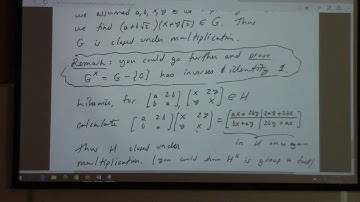 we assumed a, b,
we find (a+b√2)(x+y√2) ∈ G. Thus
G is closed under multiplication.
Remark: you could go further and prove
G^x = G - {0} has inverses & identity 1.
Likewise, for [a 2b / b a] [x 2y / y x] ∈ H
calculate [a 2b / b a] [x 2y / y x] = [ax + 2by | 2ay + 2bx / bx + ay | 2by + ax]
thus H closed under in H once again
multiplication. (you could show H^x is group in fact)